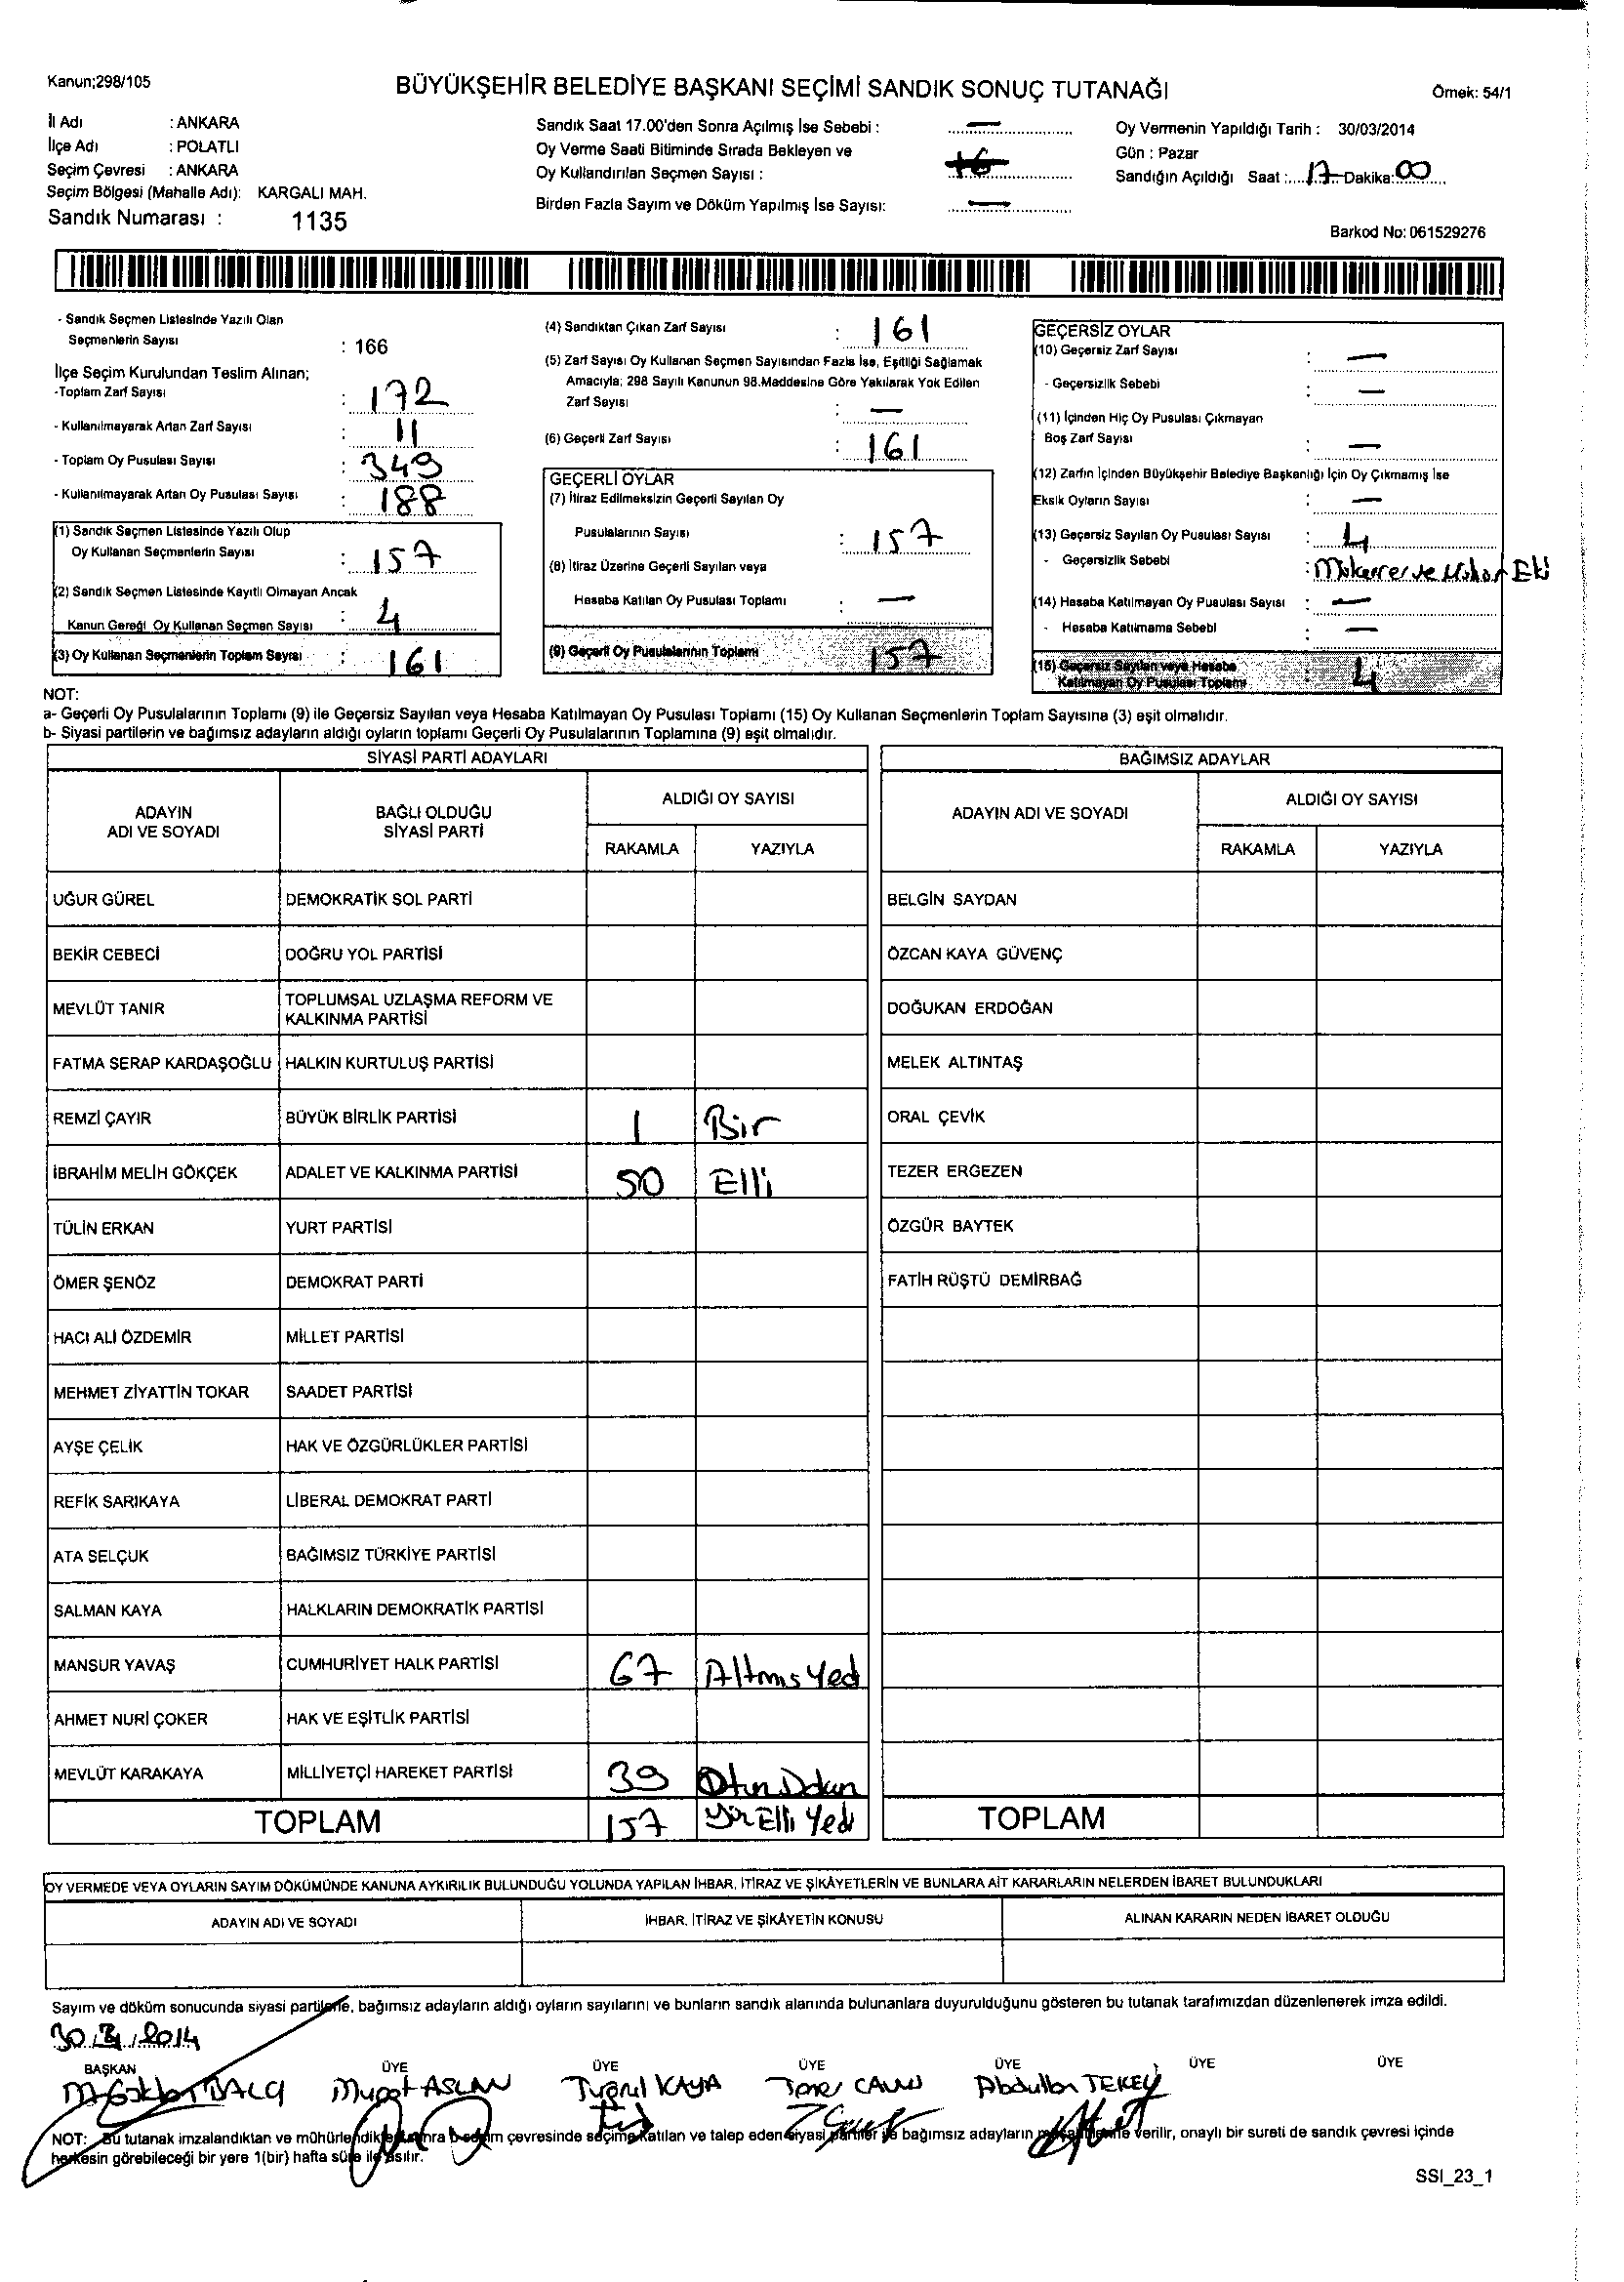 Kanun;298/105
BÜYÜKŞEHİR BELEDİYE BAŞKANI SEÇİMİ SANDIK SONUÇ TUTANAĞI
Örnek: 54/1
İl Adı : ANKARA
İlçe Adı : POLATLI
Seçim Çevresi : ANKARA
Seçim Bölgesi (Mahalle Adı): KARGALI MAH.
Sandık Numarası : 1135
Sandık Saat 17.00'den Sonra Açılmış İse Sebebi : —
Oy Verme Saati Bitiminde Sırada Bekleyen ve
Oy Kullandırılan Seçmen Sayısı :
Birden Fazla Sayım ve Döküm Yapılmış İse Sayısı: —
Oy Vermenin Yapıldığı Tarih : 30/03/2014
Gün : Pazar
Sandığın Açıldığı Saat : 17 Dakika: 00
Barkod No: 061529276
- Sandık Seçmen Listesinde Yazılı Olan
Seçmenlerin Sayısı : 166
İlçe Seçim Kurulundan Teslim Alınan;
-Toplam Zarf Sayısı : 172
- Kullanılmayarak Artan Zarf Sayısı : 11
- Toplam Oy Pusulası Sayısı : 349
- Kullanılmayarak Artan Oy Pusulası Sayısı : 188
(1) Sandık Seçmen Listesinde Yazılı Olup
Oy Kullanan Seçmenlerin Sayısı : 157
(2) Sandık Seçmen Listesinde Kayıtlı Olmayan Ancak
Kanun Gereği Oy Kullanan Seçmen Sayısı : 4
(3) Oy Kullanan Seçmenlerin Toplam Sayısı : 161
(4) Sandıktan Çıkan Zarf Sayısı : 161
(5) Zarf Sayısı Oy Kullanan Seçmen Sayısından Fazla İse, Eşitliği Sağlamak
Amacıyla; 298 Sayılı Kanunun 98.Maddesine Göre Yakılarak Yok Edilen
Zarf Sayısı : —
(6) Geçerli Zarf Sayısı : 161
GEÇERLİ OYLAR
(7) İtiraz Edilmeksizin Geçerli Sayılan Oy
Pusulalarının Sayısı : 157
(8) İtiraz Üzerine Geçerli Sayılan veya
Hesaba Katılan Oy Pusulası Toplamı : —
(9) Geçerli Oy Pusulalarının Toplamı 157
GEÇERSİZ OYLAR
(10) Geçersiz Zarf Sayısı : —
- Geçersizlik Sebebi : —
(11) İçinden Hiç Oy Pusulası Çıkmayan
Boş Zarf Sayısı : —
(12) Zarfın İçinden Büyükşehir Belediye Başkanlığı İçin Oy Çıkmamış İse
Eksik Oyların Sayısı : —
(13) Geçersiz Sayılan Oy Pusulası Sayısı : 4
- Geçersizlik Sebebi :
(14) Hesaba Katılmayan Oy Pusulası Sayısı : —
- Hesaba Katılmama Sebebi : —
(15) Geçersiz Sayılan veya Hesaba
Katılmayan Oy Pusulası Toplamı : 4
NOT:
a- Geçerli Oy Pusulalarının Toplamı (9) ile Geçersiz Sayılan veya Hesaba Katılmayan Oy Pusulası Toplamı (15) Oy Kullanan Seçmenlerin Toplam Sayısına (3) eşit olmalıdır.
b- Siyasi partilerin ve bağımsız adayların aldığı oyların toplamı Geçerli Oy Pusulalarının Toplamına (9) eşit olmalıdır.
SİYASİ PARTİ ADAYLARI
BAĞIMSIZ ADAYLAR
ADAYIN ADI VE SOYADI
BAĞLI OLDUĞU SİYASİ PARTİ
ALDIĞI OY SAYISI
RAKAMLA YAZIYLA
ADAYIN ADI VE SOYADI
ALDIĞI OY SAYISI
RAKAMLA YAZIYLA
UĞUR GÜREL DEMOKRATİK SOL PARTİ BELGİN SAYDAN
BEKİR CEBECİ DOĞRU YOL PARTİSİ ÖZCAN KAYA GÜVENÇ
MEVLÜT TANIR TOPLUMSAL UZLAŞMA REFORM VE KALKINMA PARTİSİ DOĞUKAN ERDOĞAN
FATMA SERAP KARDAŞOĞLU HALKIN KURTULUŞ PARTİSİ MELEK ALTINTAŞ
REMZİ ÇAYIR BÜYÜK BİRLİK PARTİSİ 1 Bir ORAL ÇEVİK
İBRAHİM MELİH GÖKÇEK ADALET VE KALKINMA PARTİSİ 50 Elli TEZER ERGEZEN
TÜLİN ERKAN YURT PARTİSİ ÖZGÜR BAYTEK
ÖMER ŞENÖZ DEMOKRAT PARTİ FATİH RÜŞTÜ DEMİRBAĞ
HACI ALİ ÖZDEMİR MİLLET PARTİSİ
MEHMET ZİYATTİN TOKAR SAADET PARTİSİ
AYŞE ÇELİK HAK VE ÖZGÜRLÜKLER PARTİSİ
REFİK SARIKAYA LİBERAL DEMOKRAT PARTİ
ATA SELÇUK BAĞIMSIZ TÜRKİYE PARTİSİ
SALMAN KAYA HALKLARIN DEMOKRATİK PARTİSİ
MANSUR YAVAŞ CUMHURİYET HALK PARTİSİ 67 Altmş Yed
AHMET NURİ ÇOKER HAK VE EŞİTLİK PARTİSİ
MEVLÜT KARAKAYA MİLLİYETÇİ HAREKET PARTİSİ 39
TOPLAM 157 Yüz Elli Yedi TOPLAM
OY VERMEDE VEYA OYLARIN SAYIM DÖKÜMÜNDE KANUNA AYKIRILIK BULUNDUĞU YOLUNDA YAPILAN İHBAR, İTİRAZ VE ŞİKÂYETLERİN VE BUNLARA AİT KARARLARIN NELERDEN İBARET BULUNDUKLARI
ADAYIN ADI VE SOYADI İHBAR, İTİRAZ VE ŞİKÂYETİN KONUSU ALINAN KARARIN NEDEN İBARET OLDUĞU
Sayım ve döküm sonucunda siyasi partilerle, bağımsız adayların aldığı oyların sayılarını ve bunların sandık alanında bulunanlara duyurulduğunu gösteren bu tutanak tarafımızdan düzenlenerek imza edildi.
30.3.2014
BAŞKAN ÜYE ÜYE ÜYE ÜYE ÜYE ÜYE
BALCI Murat ASLAN Tuğrul KAYA Abdullah TEKEY
NOT: Bu tutanak imzalandıktan ve mühürlendikten sonra b seçim çevresinde seçime katılan ve talep eden siyasi partiler ile bağımsız adayların verilir, onaylı bir sureti de sandık çevresi içinde
herkesin görebileceği bir yere 1(bir) hafta süre ile asılır.
SSI_23_1